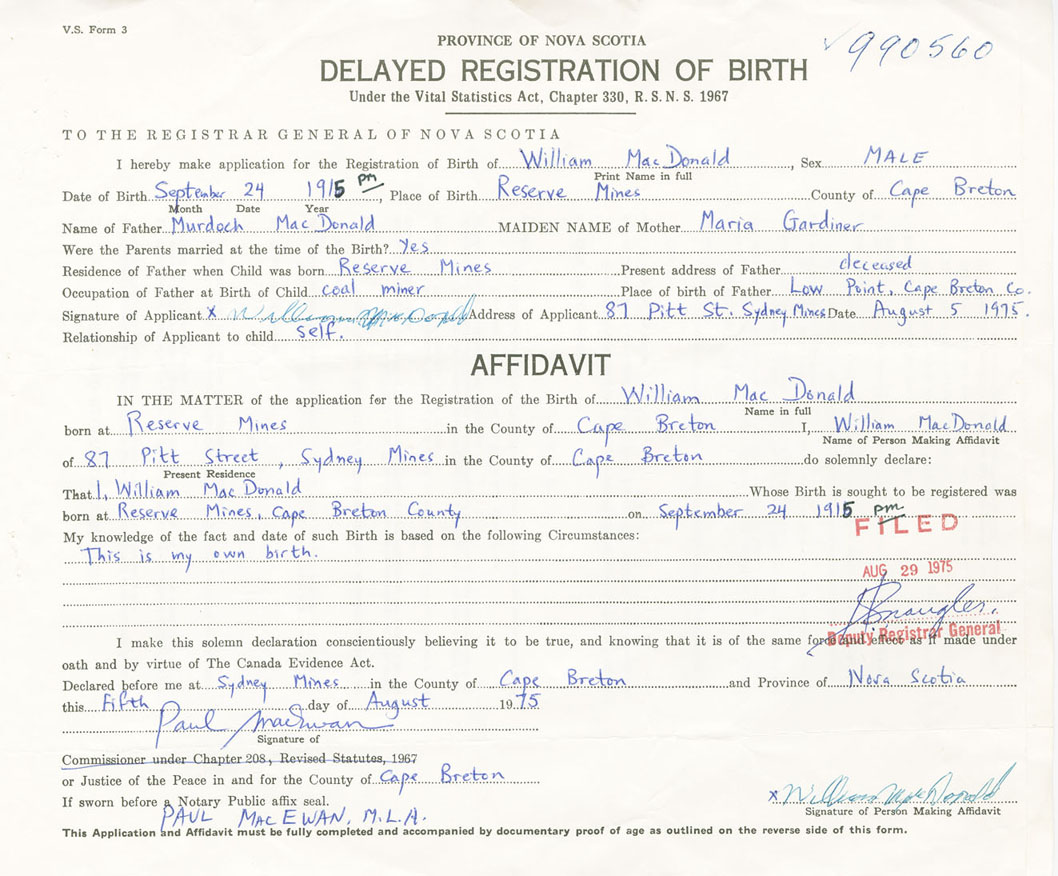 V.S. Form 3
PROVINCE OF NOVA SCOTIA
✓990560
DELAYED REGISTRATION OF BIRTH
Under the Vital Statistics Act, Chapter 330, R. S. N. S. 1967
TO THE REGISTRAR GENERAL OF NOVA SCOTIA
I hereby make application for the Registration of Birth of William MacDonald, Sex MALE
Print Name in full
Date of Birth September 24 1915 pm, Place of Birth Reserve Mines County of Cape Breton
Month Date Year
Name of Father Murdoch MacDonald MAIDEN NAME of Mother Maria Gardiner
Were the Parents married at the time of the Birth? Yes
Residence of Father when Child was born Reserve Mines Present address of Father deceased
Occupation of Father at Birth of Child coal miner Place of birth of Father Low Point, Cape Breton Co.
Signature of Applicant x William MacDonald Address of Applicant 87 Pitt St. Sydney Mines Date August 5 1975.
Relationship of Applicant to child self.
AFFIDAVIT
IN THE MATTER of the application for the Registration of the Birth of William MacDonald
Name in full
born at Reserve Mines in the County of Cape Breton I, William MacDonald
Name of Person Making Affidavit
of 87 Pitt Street, Sydney Mines in the County of Cape Breton do solemnly declare:
Present Residence
That I, William MacDonald Whose Birth is sought to be registered was
born at Reserve Mines, Cape Breton County on September 24 1915 pm
FILED
My knowledge of the fact and date of such Birth is based on the following Circumstances:
This is my own birth.
AUG 29 1975
Deputy Registrar General
I make this solemn declaration conscientiously believing it to be true, and knowing that it is of the same force and effect as if made under
oath and by virtue of The Canada Evidence Act.
Declared before me at Sydney Mines in the County of Cape Breton and Province of Nova Scotia
this fifth day of August 1975
Paul MacEwan
Signature of
Commissioner under Chapter 208, Revised Statutes, 1967
or Justice of the Peace in and for the County of Cape Breton
If sworn before a Notary Public affix seal.
x William MacDonald
Signature of Person Making Affidavit
PAUL MACEWAN, M.L.A.
This Application and Affidavit must be fully completed and accompanied by documentary proof of age as outlined on the reverse side of this form.